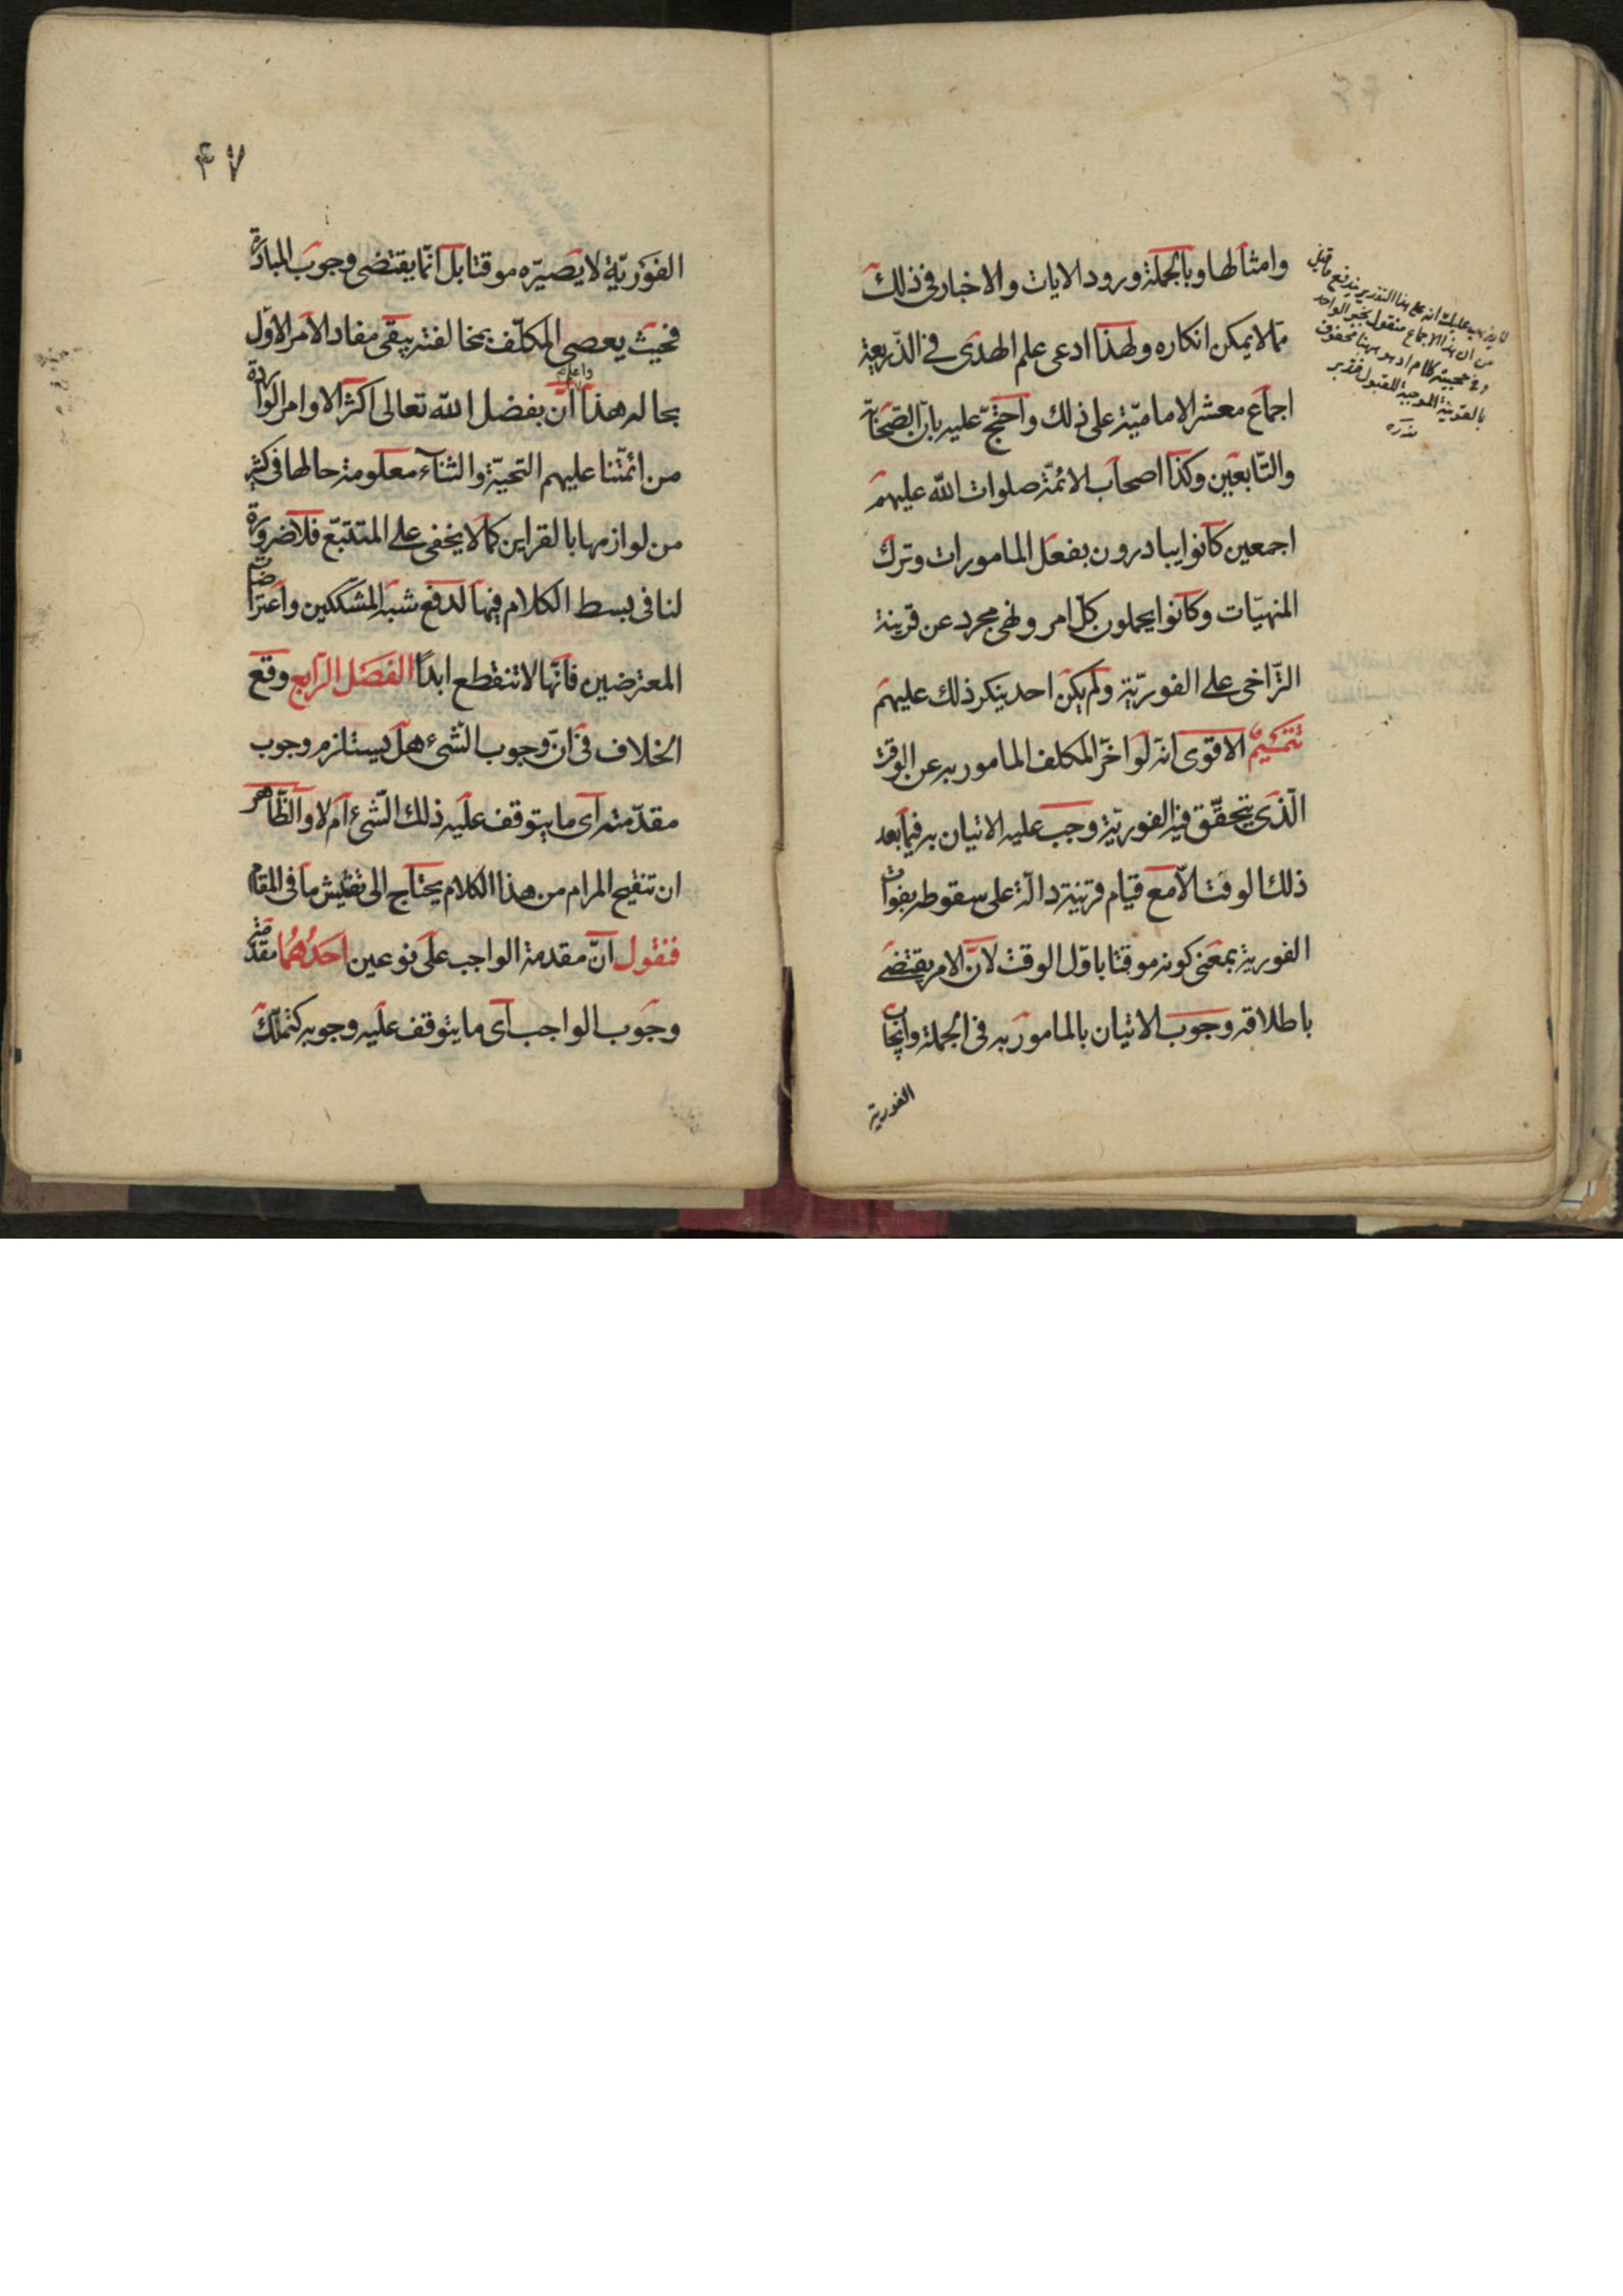 وامثالها وبالجملة ورود الايات والاخبار فى ذلك
ممّا لا يمكن انكاره ولهذا ادعى علم الهدى فى الذّريعة
اجماع معشر الاماميّة على ذلك واحتجّ عليه بانّ الصّحابة
والتّابعين وكذا اصحاب الائمّة صلوات الله عليهم
اجمعين كانوا يبادرون بفعل المامورات وترك
المنهيّات وكانوا يحملون كلّ امر ونهى مجرد عن قرينة
التّراخى على الفوريّة ولم يكن احد ينكر ذلك عليهم
تتميم الاقوى انّه لو اخّر المكلف المامور به عن الوقت
الّذى يتحقّق فيه الفوريّة وجب عليه الاتيان به فيما بعد
ذلك الوقت الّا مع قيام قرينة دالّة على سقوطه بفوات
الفورية بمعنى كونه موقتا باوّل الوقت لانّ الامر يقتضى
باطلاقه وجوب الاتيان بالمامور به فى الجملة وايجاب
الفورية
لا يذهب عليك انه على هذا التقدير يندفع ما قيل
من ان هذا الاجماع منقول بخبر الواحد
وفى حجيته كلام اذ هو ههنا محفوف
بالقرينة الموجبة للقبول فتدبر
منه ره
۴۷
الفوريّة لا يصيّره موقتا بل انّما يقتضى وجوب المبادرة
فحيث يعصى المكلّف بمخالفته يبقى مفاد الامر الاوّل
بحاله هذا واعلم انّ بفضل الله تعالى اكثر الاوامر الواردة
من ائمّتنا عليهم التحيّة والثناء معلومة حالها فى كثير
من لوازمها بالقراين كما لا يخفى على المتتبّع فلا ضرورة
لنا فى بسط الكلام فيها لدفع شبه المشككين واعتراض
المعترضين فانّها لا تنقطع ابدًا الفصل الرابع وقع
الخلاف فى انّ وجوب الشّىء هل يستلزم وجوب
مقدّمته اى ما يتوقف عليه ذلك الشّىء ام لا والظّاهر
ان تنقيح المرام من هذا الكلام يحتاج الى تفتيش ما فى المقام
فنقول انّ مقدمة الواجب على نوعين احدهما مقدمة
وجوب الواجب اى ما يتوقف عليه وجوبه كتملّك